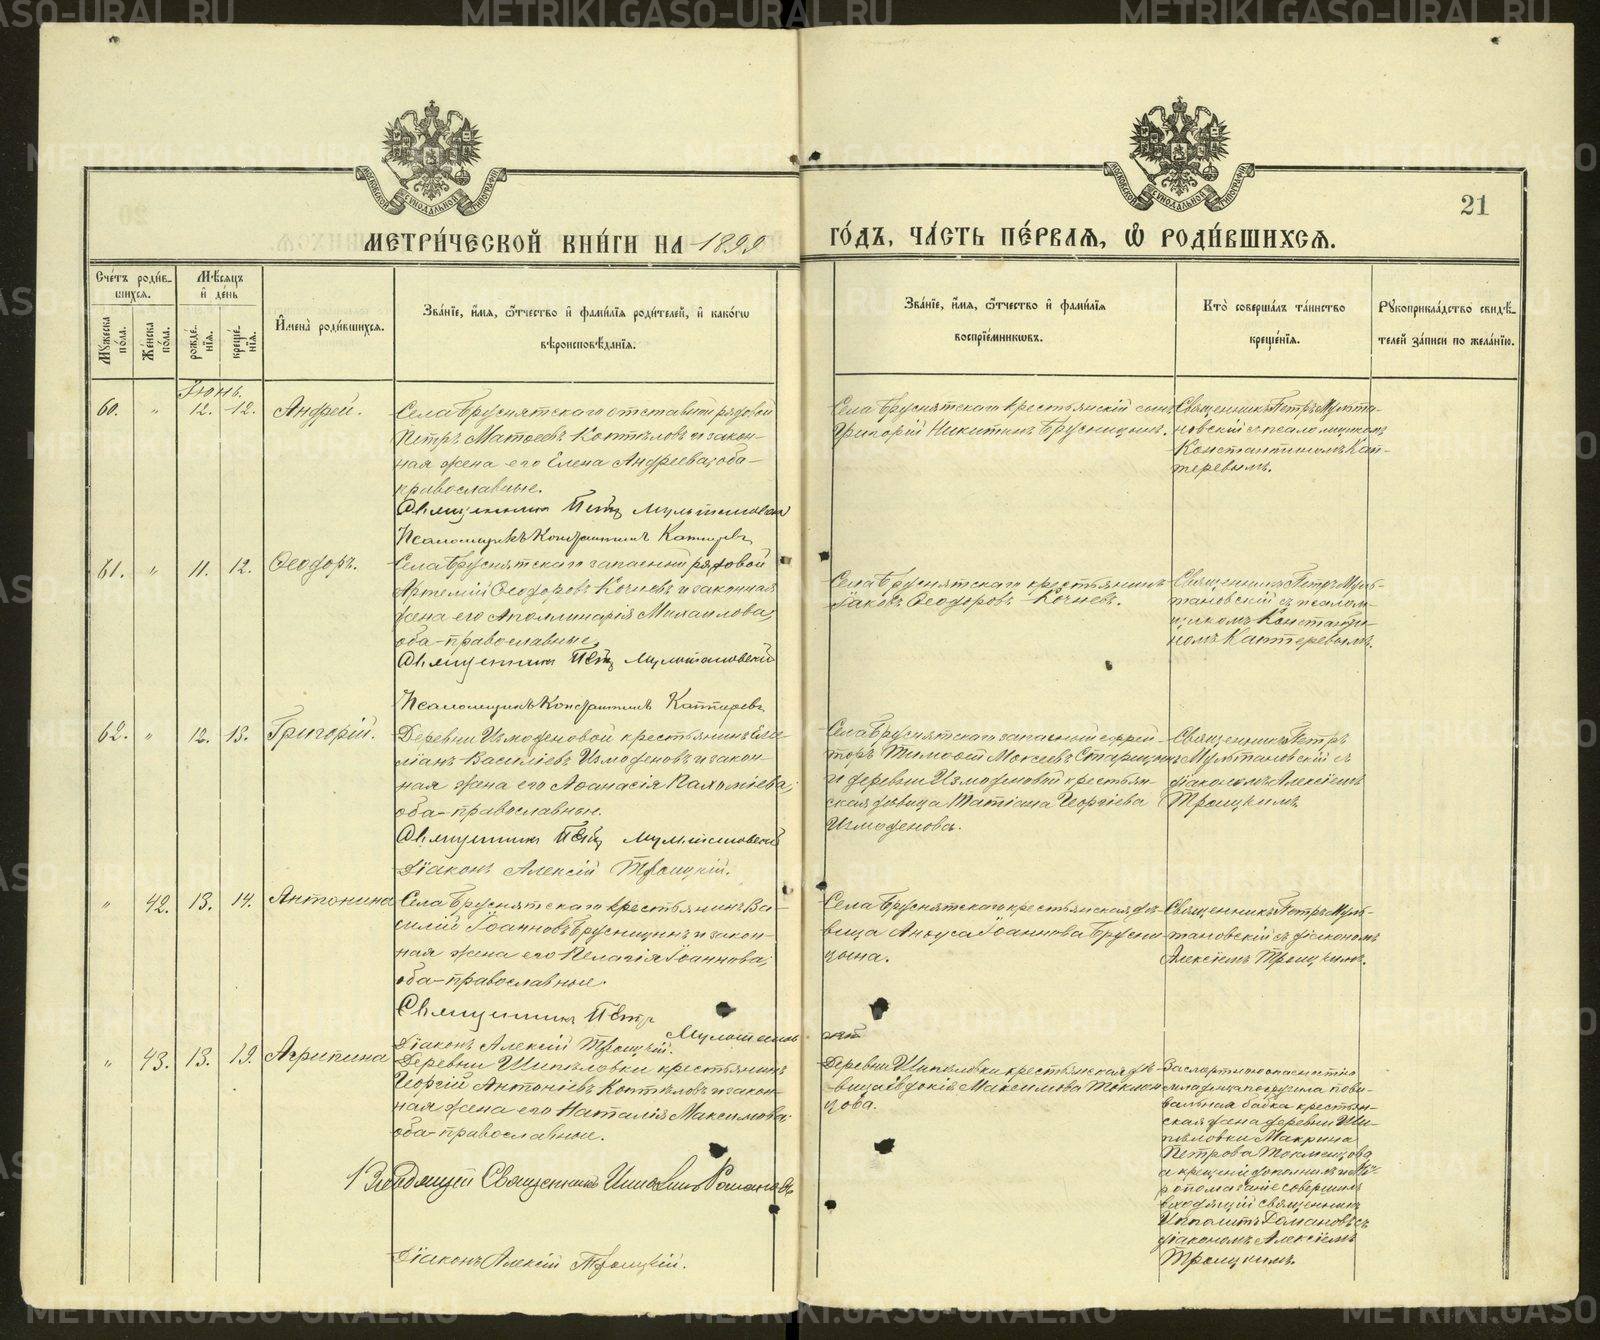 METRIKI.GASO-URAL.RU
МОСКОВСКОЙ СУНОДАЛЬНОЙ ТИПОГРАФІИ
МОСКОВСКОЙ СУНОДАЛЬНОЙ ТИПОГРАФІИ
21
МЕТРИ́ЧЕСКОЙ КНИ́ГИ НА 1899
ГО́ДЪ, ЧА́СТЬ ПЕ́РВАЯ, Ѽ РОДИ́ВШИХСЯ.
Сче́тъ роди́в-
шихся.
Мꙋ́жеска по́ла.
Же́нска по́ла.
Мѣ́сяцъ
и҆ де́нь
рожде́-
нїя.
креще́-
нїя.
И҆мена̀ роди́вшихся.
Зва́нїе, и҆́мя, ѻ҆́тчество и҆ фамѝлїя роди́телей, и҆ како́гѡ
вѣроисповѣ́данїя.
Зва́нїе, и҆́мя, ѻ҆́тчество и҆ фамѝлїя
воспрїе́мникѡвъ.
Кто̀ соверша́лъ та́инство
креще́нїя.
Рꙋкоприкла́дство свидѣ́-
телей за́писи по жела́нїю.
Іюнь.
60. " 12. 12. Андрей.
Села Бруснятскаго отставной рядовой
Петръ Матѳеевъ Коптѣловъ и закон-
ная жена его Елена Андреева, оба
православные.
Священникъ Петръ Мультановскій
Псаломщикъ Константинъ Каптеревъ
Села Бруснятскаго крестьянскій сынъ
Григорій Никитинъ Брусницынъ.
Священникъ Петръ Мульта-
новскій съ псаломщикомъ
Константиномъ Кап-
теревымъ.
61. " 11. 12. Ѳеодоръ.
Села Бруснятскаго запасный рядовой
Артемій Ѳеодоровъ Кочневъ и законная
жена его Аполлинарія Михаилова,
оба православные.
Священникъ Петръ Мультановскій
Псаломщикъ Константинъ Каптеревъ
Села Бруснятскаго крестьянинъ
Іаковъ Ѳеодоровъ Кочневъ.
Священникъ Петръ Муль-
тановскій съ псалом-
щикомъ Константи-
номъ Каптеревымъ.
62. " 12. 13. Григорій.
Деревни Измоденовой крестьянинъ Еми-
ліанъ Василіевъ Измоденовъ и закон-
ная жена его Аѳанасія Пахоміева,
оба православные.
Священникъ Петръ Мультановскій
Діаконъ Алексій Троицкій.
Села Бруснятскаго запасный ефрей-
торъ Тимоѳей Моисеевъ Старицынъ
и деревни Измоденовой крестьян-
ская дѣвица Татіана Георгіева
Измоденова.
Священникъ Петръ
Мультановскій съ
діакономъ Алексіемъ
Троицкимъ
" 42. 13. 14. Антонина
Села Бруснятскаго крестьянинъ Ва-
силій Іоанновъ Брусницынъ и закон-
ная жена его Пелагія Іоаннова,
оба православные.
Священникъ Петръ
Мультановскій
Діаконъ Алексій Троицкій.
Села Бруснятскаго крестьянская дѣ-
вица Анфуса Іоаннова Брусни-
цына.
Священникъ Петръ Муль-
тановскій съ діакономъ
Алексіемъ Троицкимъ.
" 43. 13. 19. Агрипина
Деревни Шипѣловки крестьянинъ
Георгій Антоніевъ Коптѣловъ и закон-
ная жена его Наталія Максимова,
оба православные.
Священникъ Ипполитъ
Діаконъ Алексій Троицкій.
Деревни Шипѣловки крестьянская дѣ-
вица Евдокія Максимова Токмен-
цова.
За смертною опасностію
младенца погрузила пови-
вальная бабка крестьян-
ская жена деревни Ши-
пѣловки Макрина
Петрова Токменцова
а крещеніе дополнилъ и Му-
ропомазаніе совершилъ
входящій священникъ
Ипполитъ съ
діакономъ Алексіемъ
Троицкимъ.